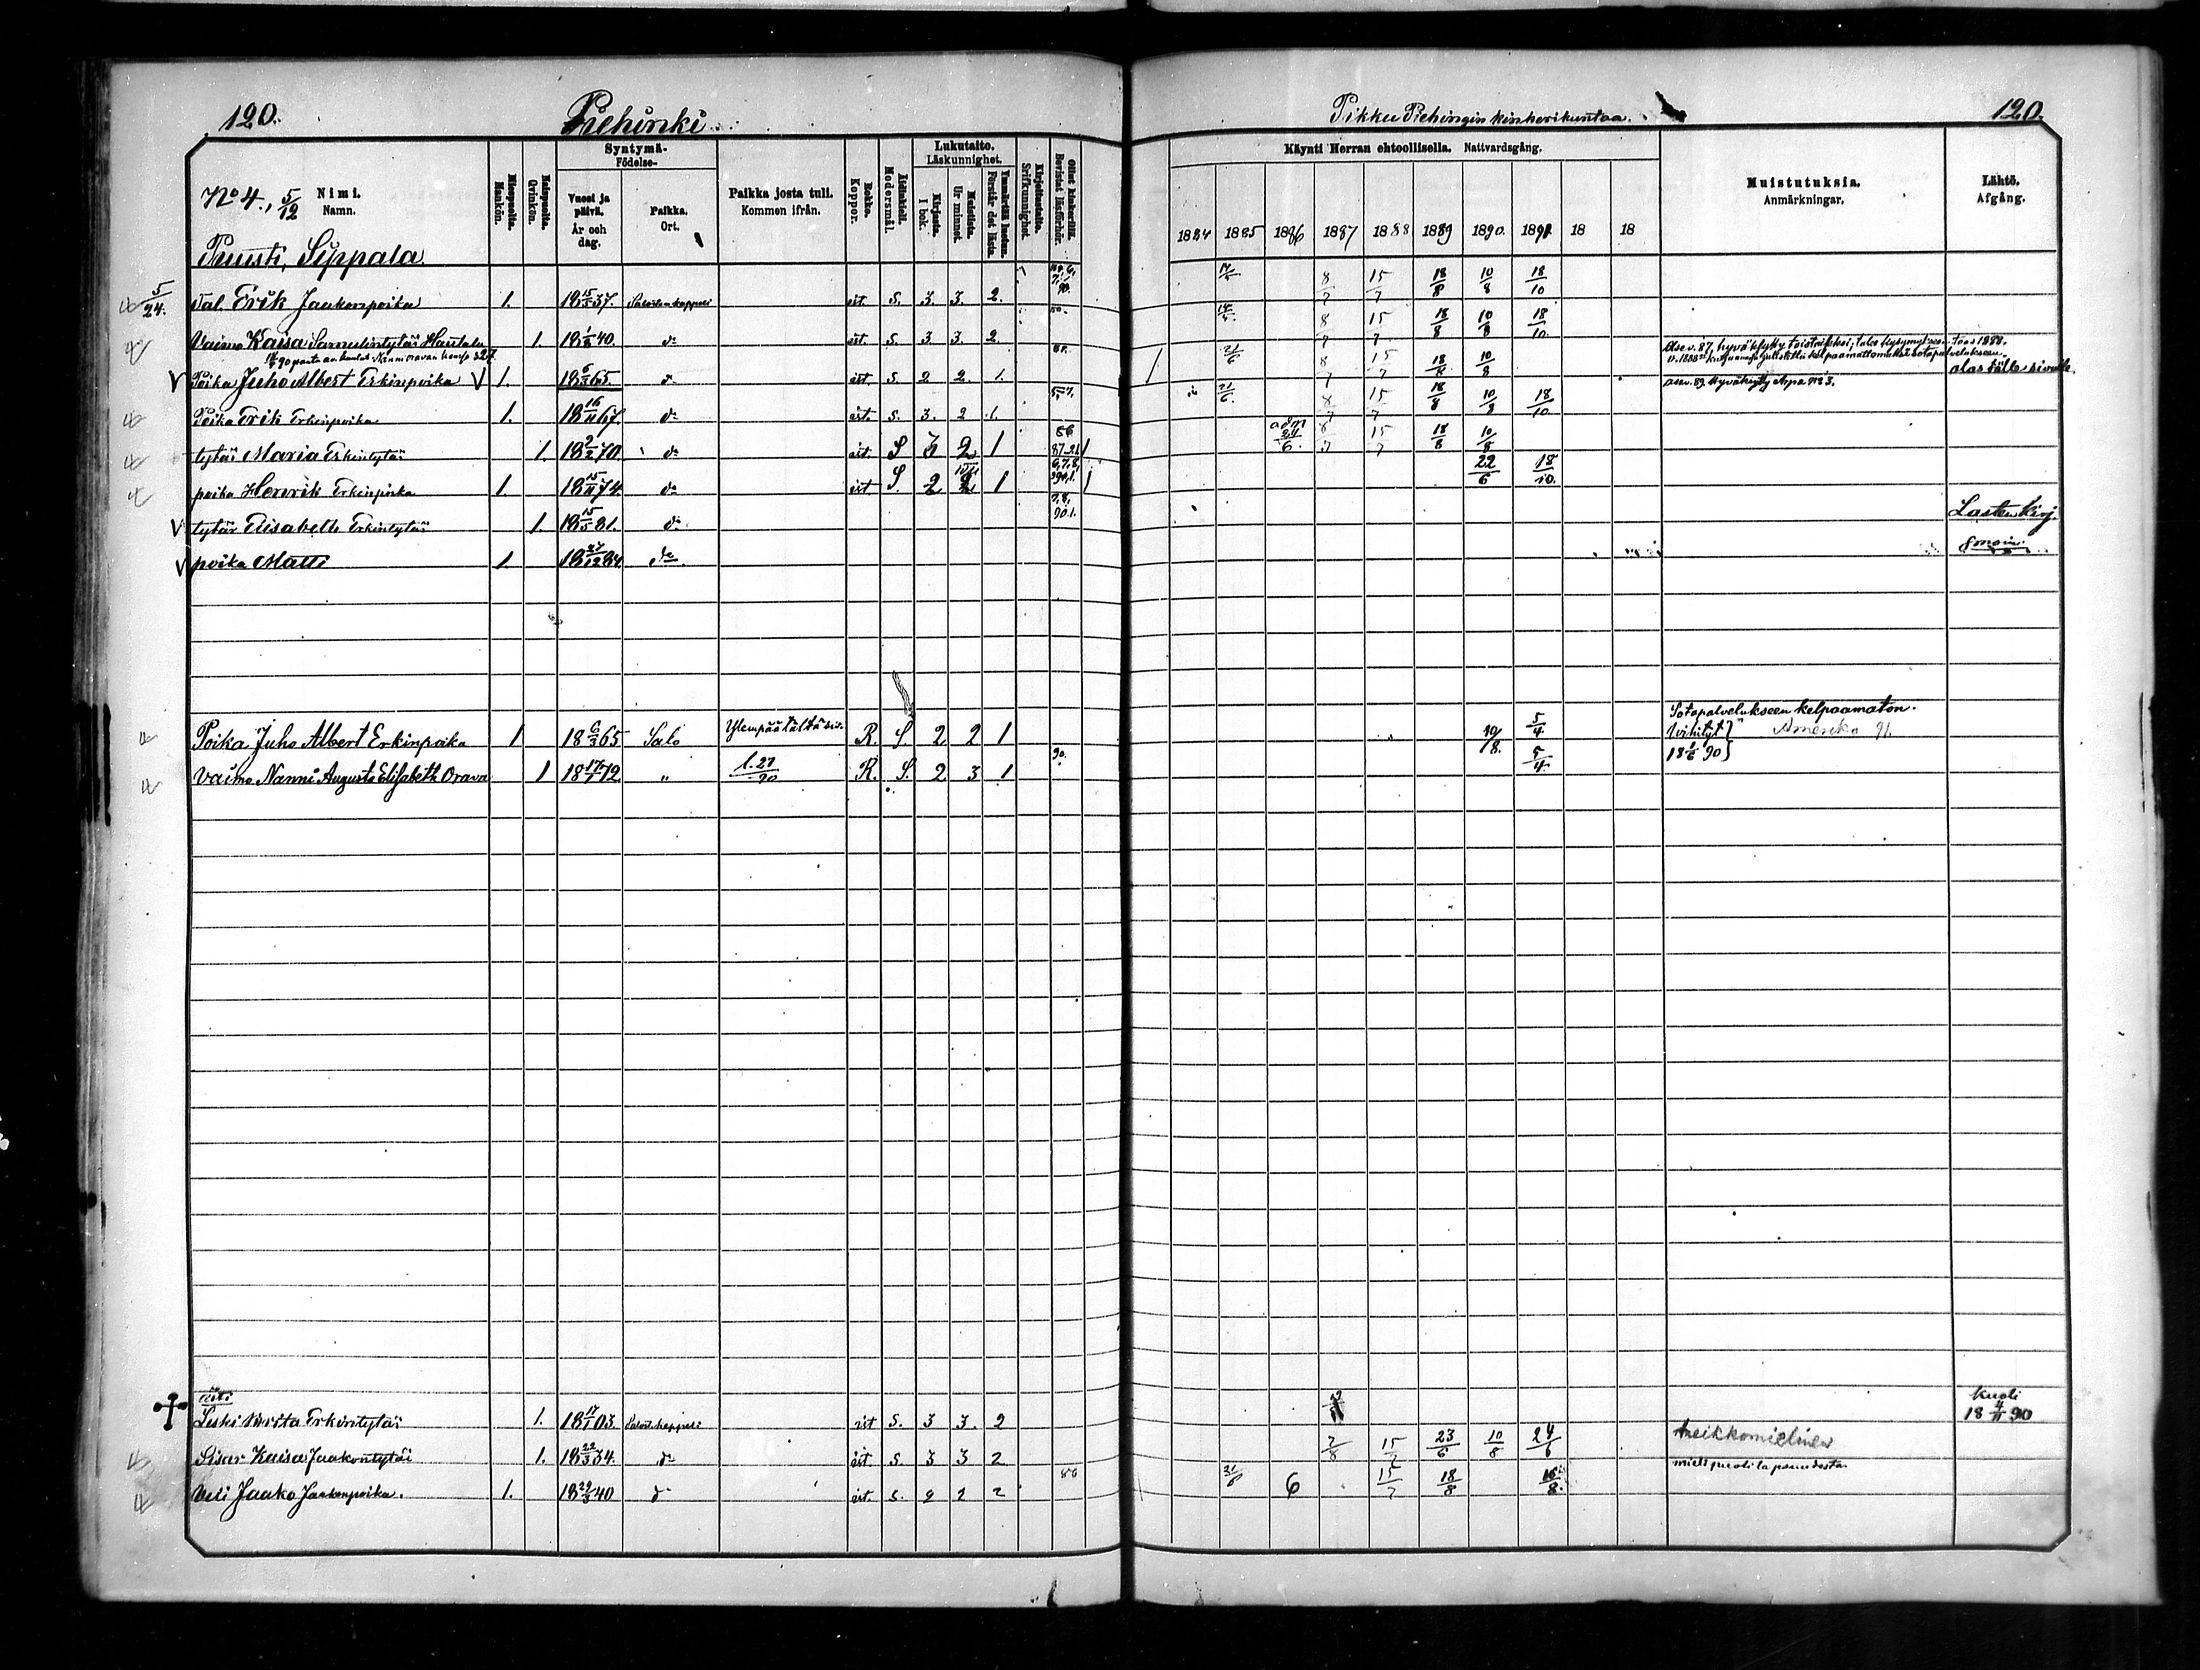 120.
Piehinki
Syntymä-
Födelse-
Lukutaito.
Läskunnighet.
No 4., 5/12
Nimi.
Namn.
Miespuolta.
Mankön.
Vaispuolta.
Qvinkön.
Vuosi ja päivä.
År och dag.
Paikka.
Ort.
Paikka josta tuli.
Kommen ifrån.
Rokko.
Koppor.
Äidinkieli.
Modersmål.
Kirjasta.
I bok.
Muistista.
Ur minnet.
Ymmärtää luetun.
Förstår det lästa.
Kirjoitustaito.
Skrifkunnighet.
Ollut kinkerillä.
Bevistat läsförhör.
Seppala
5/24.
Tal. Erik Jaakonpoika 1. 18 15/5 37. rit. S. 3 3. 2.
Vaimo Kaisa Samulintytär Hautala 1. 40. do rit. S. 3 3. 2
Poika Juho Albert Erkinpoika 1. 18 6/3 65. do rit. S. 2 2. 1.
Poika Erik Erkinpoika 1. 18 16/11 67. do rit. S. 3. 2 1.
tytär Maria Erkintytär 1. 18 2/2 70. do rit. S 3 2 1
poika Henrik Erkinpoika 1. 18 15/11 74. do rit. S. 2 2 1
tytär Elisabeth Erkintytär 1 18 15/5 81. do
poika Matti 1. 18 27/12 84. do
Poika Juho Albert Erkinpoika 1 18 6/3 65 Salo Ylempää tältä siv. R. S. 2 2 1
Vaimo Nanni Augusta Elisabeth Orava 1 18 17/1 72. " l. 27/90 R. S. 2 3 1 90.
äiti
Leski Brita Erkintytär 1. 18 17/1 03. rit S. 3 3. 2
Sisar Kaisa Jaakontytär 1. 18 22/3 34. do rit. S. 3 3 2
Veli Jaako Jaakonpoika. 1. 18 29/3 40 do rit. S. 2 2 2 86
Pikku Piehingin kinkerikuntaa.
120.
Käynti Herran ehtoollisella. Nattvardsgång.
Muistutuksia.
Anmärkningar.
Lähtö.
Afgång.
1884 1885 1886 1887 1888 1889 1890. 1891. 18 18
8/7 15/7 18/8 10/8 18/10
8/7 15/7 18/8 10/8 18/10
21/6 8/7 15/7 18/8 10/8
alas tälle sivulle.
asev. 89. Hyväksytty Arpa No 3.
21/6. 8/7 15/7 18/8 10/8 18/10
24/6. 15/7 18/8 10/8
22/6 18/10.
Lasten kirj.
samoin.
Sotapalvelukseen kelpaamaton.
10/8. 5/4 Vihityt Amerika 91.
5/4. 18 1/6 90
Kuoli
18 4/11 90
7/8 15/7 23/6 10/8 24/6 heikkomielinen
21/6 6 15/7 18/8 16/8.